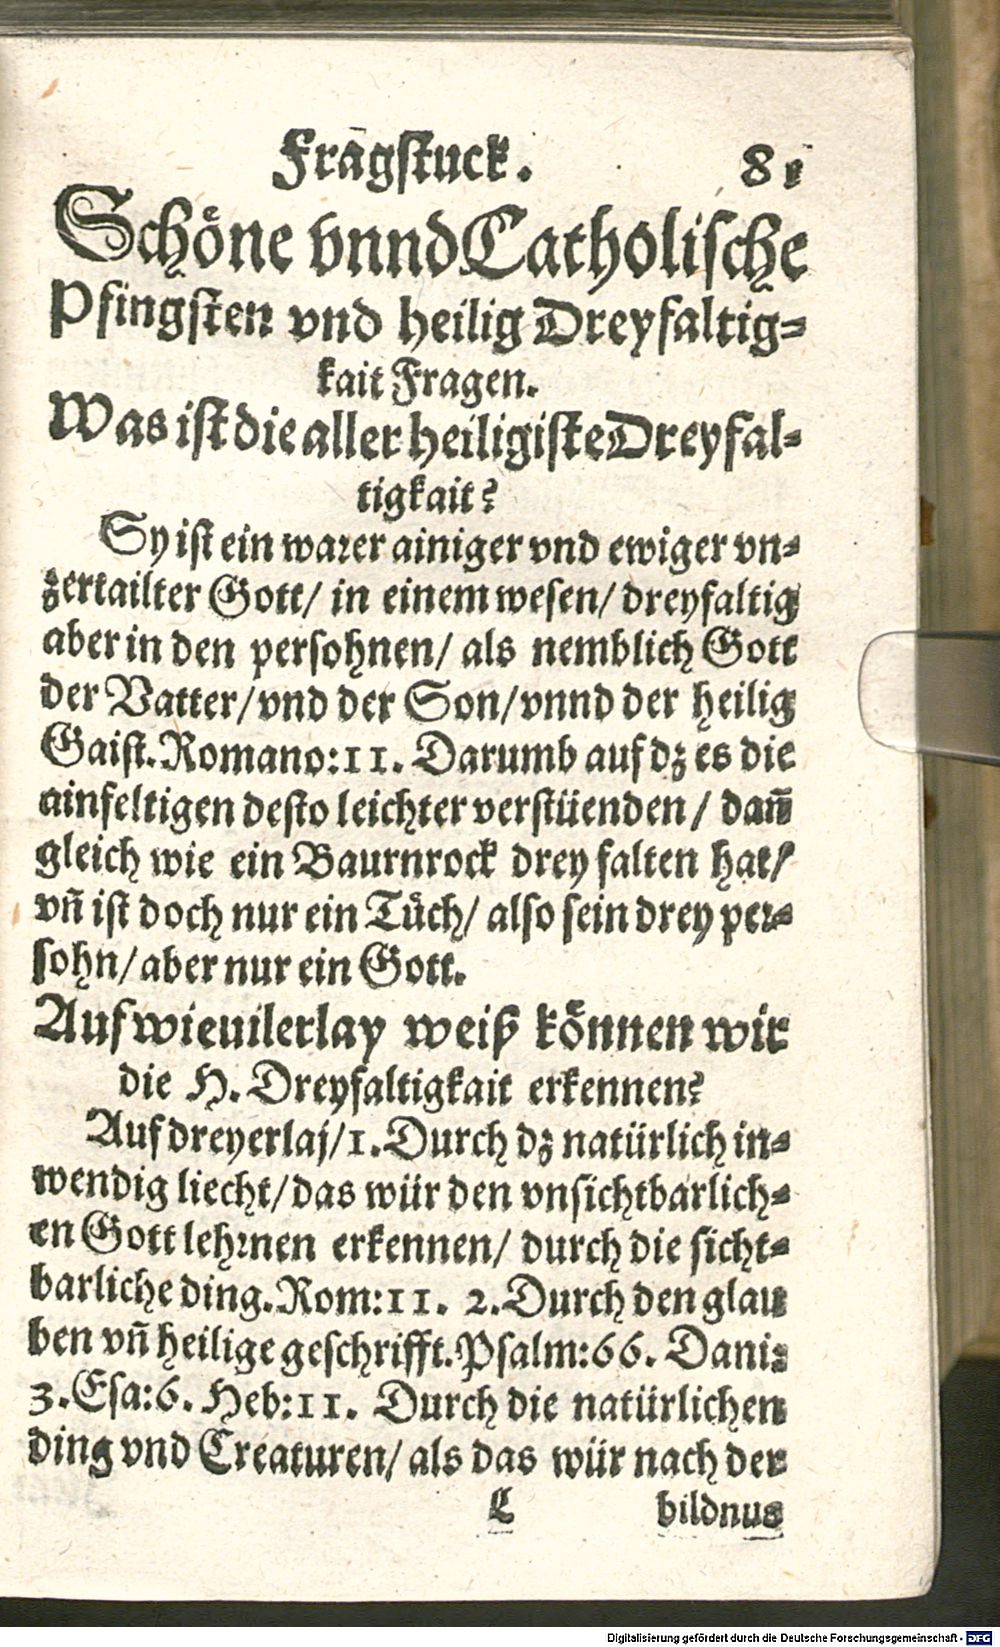 Fragstuck. 81
Schöne vnnd Catholische
Pfingsten vnd heilig Dreyfaltig⸗
kait Fragen.
Was ist die aller heiligiste Dreyfal⸗
tigkait?
Sy ist ein warer ainiger vnd ewiger vn⸗
zertailter Gott/ in einem wesen/ dreyfaltig
aber in den persohnen/ als nemblich Gott
der Vatter/ vnd der Son/ vnnd der heilig
Gaist. Romano: 11. Darumb auf dz es die
ainfeltigen desto leichter verstüenden/ dañ
gleich wie ein Baurnrock drey falten hat/
vñ ist doch nur ein Tůch/ also sein drey per⸗
sohn/ aber nur ein Gott.
Auf wieuilerlay weiß können wir
die H. Dreyfaltigkait erkennen?
Auf dreyerlaj/ 1. Durch dz natürlich in⸗
wendig liecht/ das wür den vnsichtbarlich⸗
en Gott lehrnen erkennen/ durch die sicht⸗
barliche ding. Rom: 11. 2. Durch den glau
ben vñ heilige geschrifft. Psalm: 66. Dani:
3. Esa: 6. Heb: 11. Durch die natürlichen
ding vnd Creaturen/ als das wür nach der
L bildnus
Digitalisierung gefördert durch die Deutsche Forschungsgemeinschaft - DFG